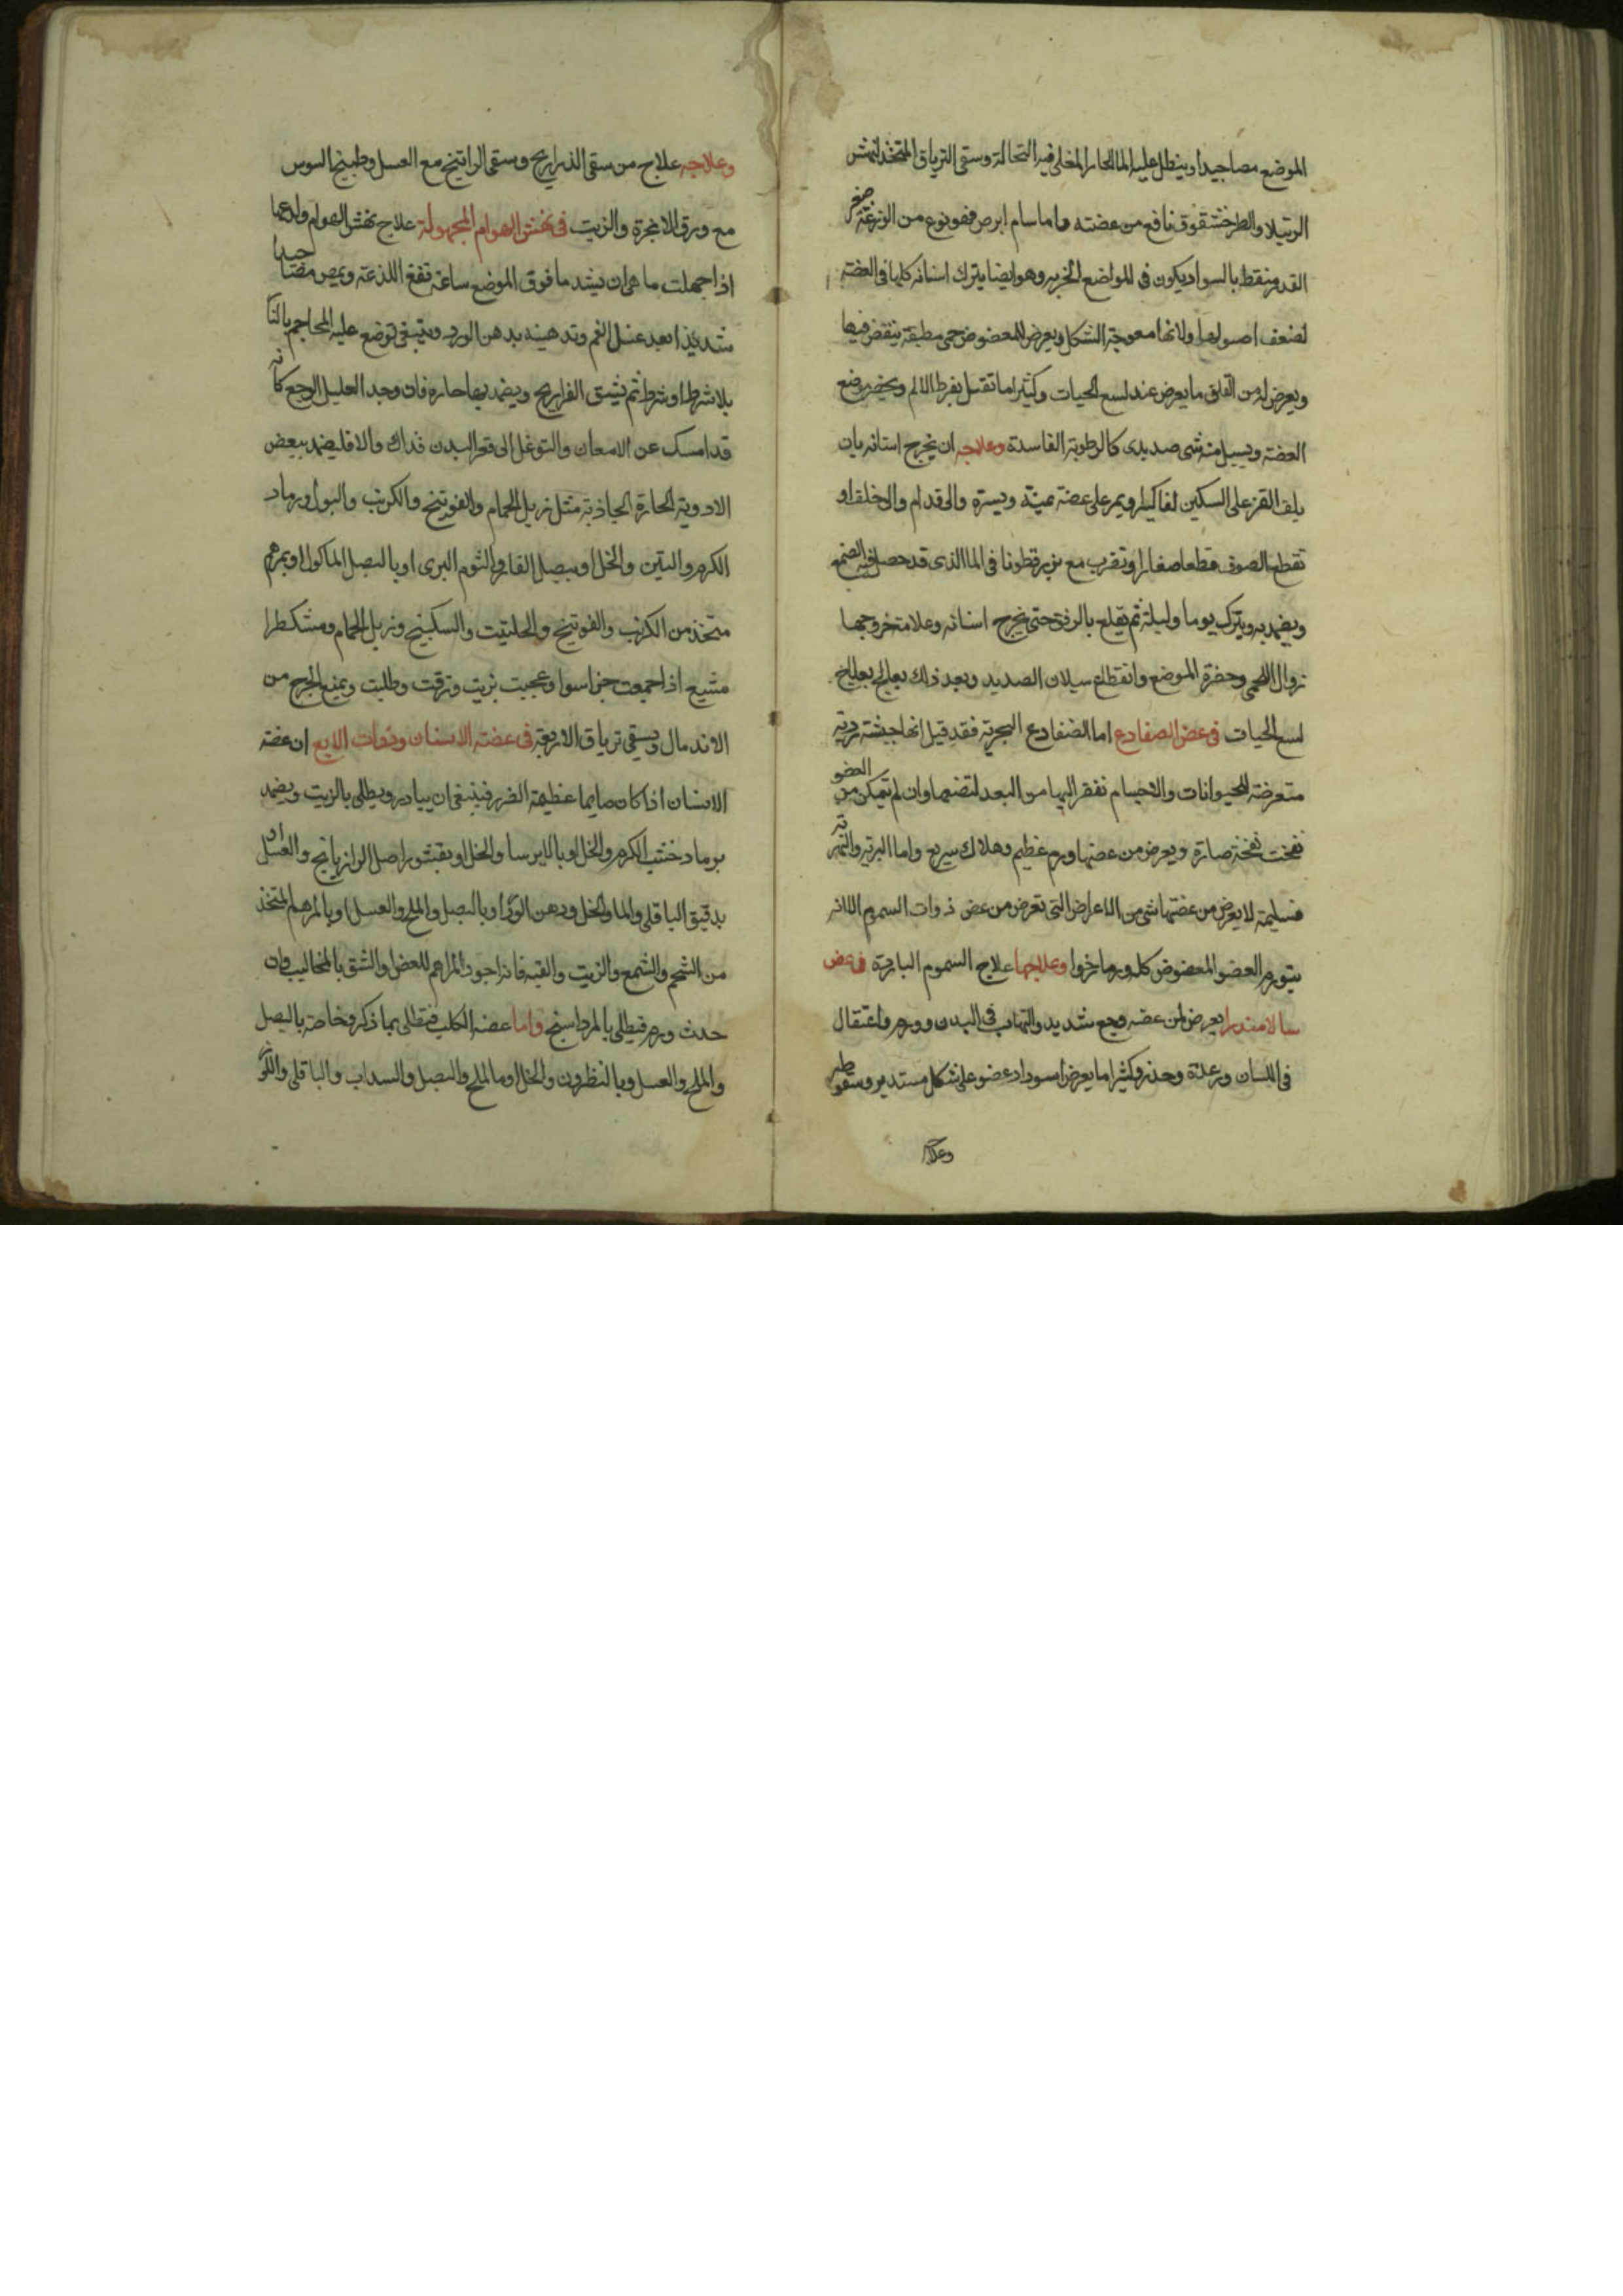 الموضع مصا جيدا وينطل عليه الماء الحار المغلى فيه النخالة وسقى الترياق المتخذ لنهش
الرتيلا والطرخشقوق نافع من عضته واما سام ابرص فهو نوع من الوزغة صغر
القد منقط بالسواد يكون في المواضع الخربه وهو ايضا يترك اسنانه كلها في العضة
لضعف اصولها ولانها معوجة الشكل ويعرض للمعضوض حمى مطبقة ينقض فيها
ويعرض له من القلق ما يعرض عند لسع الحيات وكثيرا ما تقتل بفرط الالم ويخضر موضع
العضة ويسيل منه شى صديدى كالرطوبة الفاسدة وعلاجه ان يخرج اسنانه بان
يلف القز على السكين لفا كثيرا ويمر على عضة يمنة ويسرة والى قدام والى خلف او
تقطع الصوف قطعا صغارا وتقرب مع بزرقطونا في الما الذى قد حصل فيه الصمغ
ويضمد به ويترك يوما وليلة ثم يقلع بالرفق حتى يخرج اسنانه وعلامة خروجها
زوال الحمى وحضرة الموضع وانقطاع سيلان الصديد وبعد ذلك يعالج بعلاج
لسع الحيات في عض الضفادع اما الضفادع البحرية فقد قيل انها خبيثة ردية
متعرضة للحيوانات والاجسام تقفز اليها من البعد لتضمها وان لم تتمكن من العض
نفخت نفخة ضارة ويعرض من عضها ورم عظيم وهلاك سريع واما البرية والنهرية
فسليمة لا يعرض من عضتها شى من الاعراض التى تعرض من عض ذوات السموم الا انه
يتورم العضو المعضوض كله ورما رخوا وعلاجها علاج السموم الباردة في عض
سالامندرا يعرض لمن عضه وجع شديد والتهاب في البدن وورم واعتقال
في اللسان ورعدة وخدر وكثيرا ما يعرض اسوداد عضو على شكل مستدير وسقوطه
وعلاجه
وعلاجه علاج من سقى الذراريح وسقى الراتينج مع العسل وطبيخ السوس
مع ورق الانجرة والزيت في نهش الهوام المجهولة علاج نهش الهوام ولدغها
اذا جهلت ما هى ان يشد ما فوق الموضع ساعة تقع اللذعة ويمص مصا جيدا
شديدا بعد غسل الفم وتدهينه بدهن الورد وينبغى توضع عليه المحاجم بالنار
بلا شرط او شرط ثم يشق الفراريج ويضمد بها حارة فان وجد العليل الوجع كانه
قد امسك عن الامعان والتوغل الى قعر البدن فذاك والا فليضمد ببعض
الادوية الحارة الجاذبة مثل زبل الحمام والفوتنج والكرنب والبول ورماد
الكرم والتين والخل او ببصل الفار والثوم البرى او بالبصل الماكول او بمرهم
متخذ من الكرنب والفوتنج والحلتيت والسكبينج وزبل الحمام ومشكطرا
مشيع اذا جمعت جزا سوا وعجنت بزيت وزقت وطليت ويمنع الجرح من
الاندمال ويسقى ترياق الاربعة في عضة الانسان وذوات الاربع ان عضة
الانسان اذا كان صايما عظيمة الضرر فينبغى ان يبادر ويطلى بالزيت ويضمد
برماد خشب الكرم والخل او بالايرسا والخل او بقشور اصل الرازيانج والعسل او
بدقيق الباقلى والما والخل ودهن الورد او بالبصل والملح والعسل او بالمرهم المتخذ
من الشحم والشمع والزيت والقنه فانه اجود المراهم للعض والشق بالمخاليب فان
حدث ورم فيطلى بالمرداسنج واما عضة الكلب فتطلى بما ذكر وخاصة بالبصل
والملح والعسل وبالنطرون والخل او ما الملح والبصل والسداب والباقلى واللوز